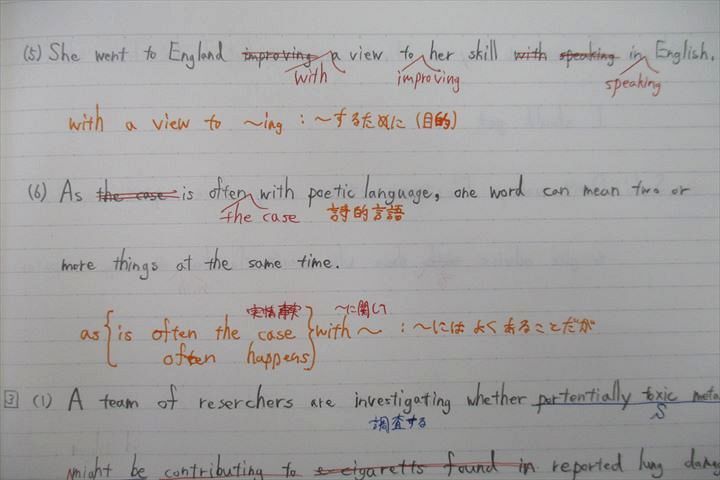 (5) She went to England improving a view to her skill with speaking in English.
with improving speaking
with a view to ～ing : ～するために (目的)
(6) As the case is often with poetic language, one word can mean two or
the case 詩的言語
more things at the same time.
実情 事実 ～に関して
as { is often the case } with ～ : ～にはよくあることだが
often happens
3 (1) A team of reserchers are investigating whether portentially toxic meta
調査する S
might be contributing to e-cigaretts found in reported lung damag